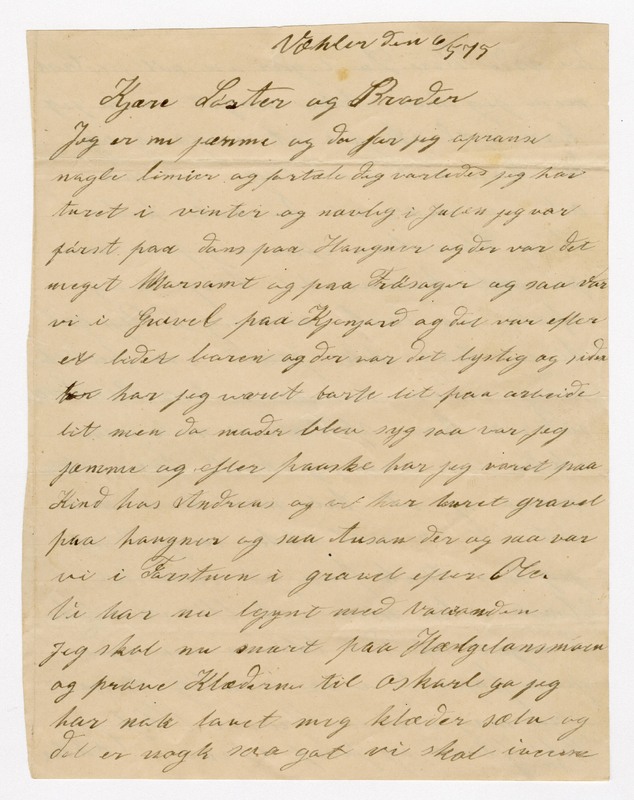 Væhler den 6/5 75
Kjære Søster og Broder
Jeg er nu jæmme og da far jeg apranse
nagle linnier og fortæle dig varledes jeg har
turet i vinter og navlig i Julen jeg var
først paa dans paa Haugner og der var det
meget Marsamt og paa og saa var
vi i Gravel paa og det var efter
et lidet baren og der var det lystig og siden
har jeg været barte lit paa arbeide
lit men da mader blev syg saa var jeg
jæmme og efter paaske har jeg varet paa
Kind hos Andreas og vi har buret gravel
paa haugner og saa der og saa var
vi i Førstuen i gravel efter Ole
Vi har nu bynt med
Jeg skal nu snart paa Hælgelansmoen
og prøve Klæderne til Oskarl ga jeg
har nok lavet mig klæder sælv og
det er nogk saa gat vi skal